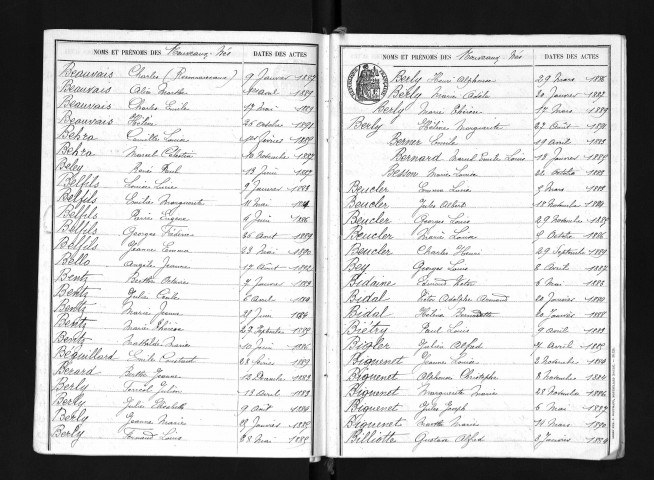 NOMS ET PRÉNOMS DES Nouveaux-Nés DATES DES ACTES
Beauvais Charles (Reconnaissance) 9 Janvier 1887
Beauvais Avril 1889
Beauvais Charles Emile 17 Mai 1889
Beauvais Hélène 26 Octobre 1891
Behra Camille Louise Février 1889
Behra Marcel Célestin 16 Novembre 1892
Beley René Paul 13 Juin 1892
Belfils Louise Lucie 9 Janvier 1883
Belfils Emilie Marguerite 11 Mai 1884
Belfils Pierre Eugène 4 Juin 1886
Belfils Georges Frédéric 26 Août 1889
Belfils Jeanne Emma 23 Mai 1890
Belle Angèle Jeanne 17 Août 1892
Bentz Berthe Janvier 1883
Bentz Julie Avril 1884
Bentz Marie Jeanne 21 Juin 1884
Bentz Marie Thérèse 27 Septembre 1889
Bentz Mathilde Marie 10 Juin 1886
Béquillard Emile Constant 28 Février 1889
Berard Berthe Jeanne 13 Décembre 1883
Berly 13 Avril 1883
Berly Julie Elisabeth 9 Août 1884
Berly Jeanne Marie 29 Janvier 1889
Berly Fernand Louis 23 Mai 1889
NOMS ET PRÉNOMS DES Nouveaux-Nés DATES DES ACTES
Berly Henri Alphonse 29 Mars 1886
Berly Marie Adèle 20 Janvier 1892
Berly Marie 17 Mars 1889
Berly Hélène Marguerite 27 Août 1890
Berner 19 Avril 1883
Bernard Marcel Emile Louis 13 Janvier 1889
Besson Marie Louise 21 Octobre 1883
Beucler Emma Lina 3 Mars 1888
Beucler Jules Albert 18 Novembre 1884
Beucler Georges Louis 29 Novembre 1889
Beucler Marie Louise 9 Octobre 1886
Beucler Charles Henri 29 Septembre 1889
Bey Georges Louis 8 Avril 1887
Bidaine Edmond Victor 6 Mai 1883
Bidal Victor Adolphe Armand 20 Janvier 1880
Bidal Hélène Bernadette 20 Janvier 1888
Bietry Paul Louis 9 Avril 1888
Bigler Julien Alfred 4 Avril 1889
Biquenet Jeanne Louise 2 Novembre 1884
Biquenet Alphonse Christophe 8 Novembre 1884
Biquenet Marguerite Marie 28 Novembre 1886
Biquenet Jules Joseph 6 Mai 1887
Biquenet Marthe Marie 14 Mars 1890
Billiotte Gustave Alfred 3 Janvier 1884